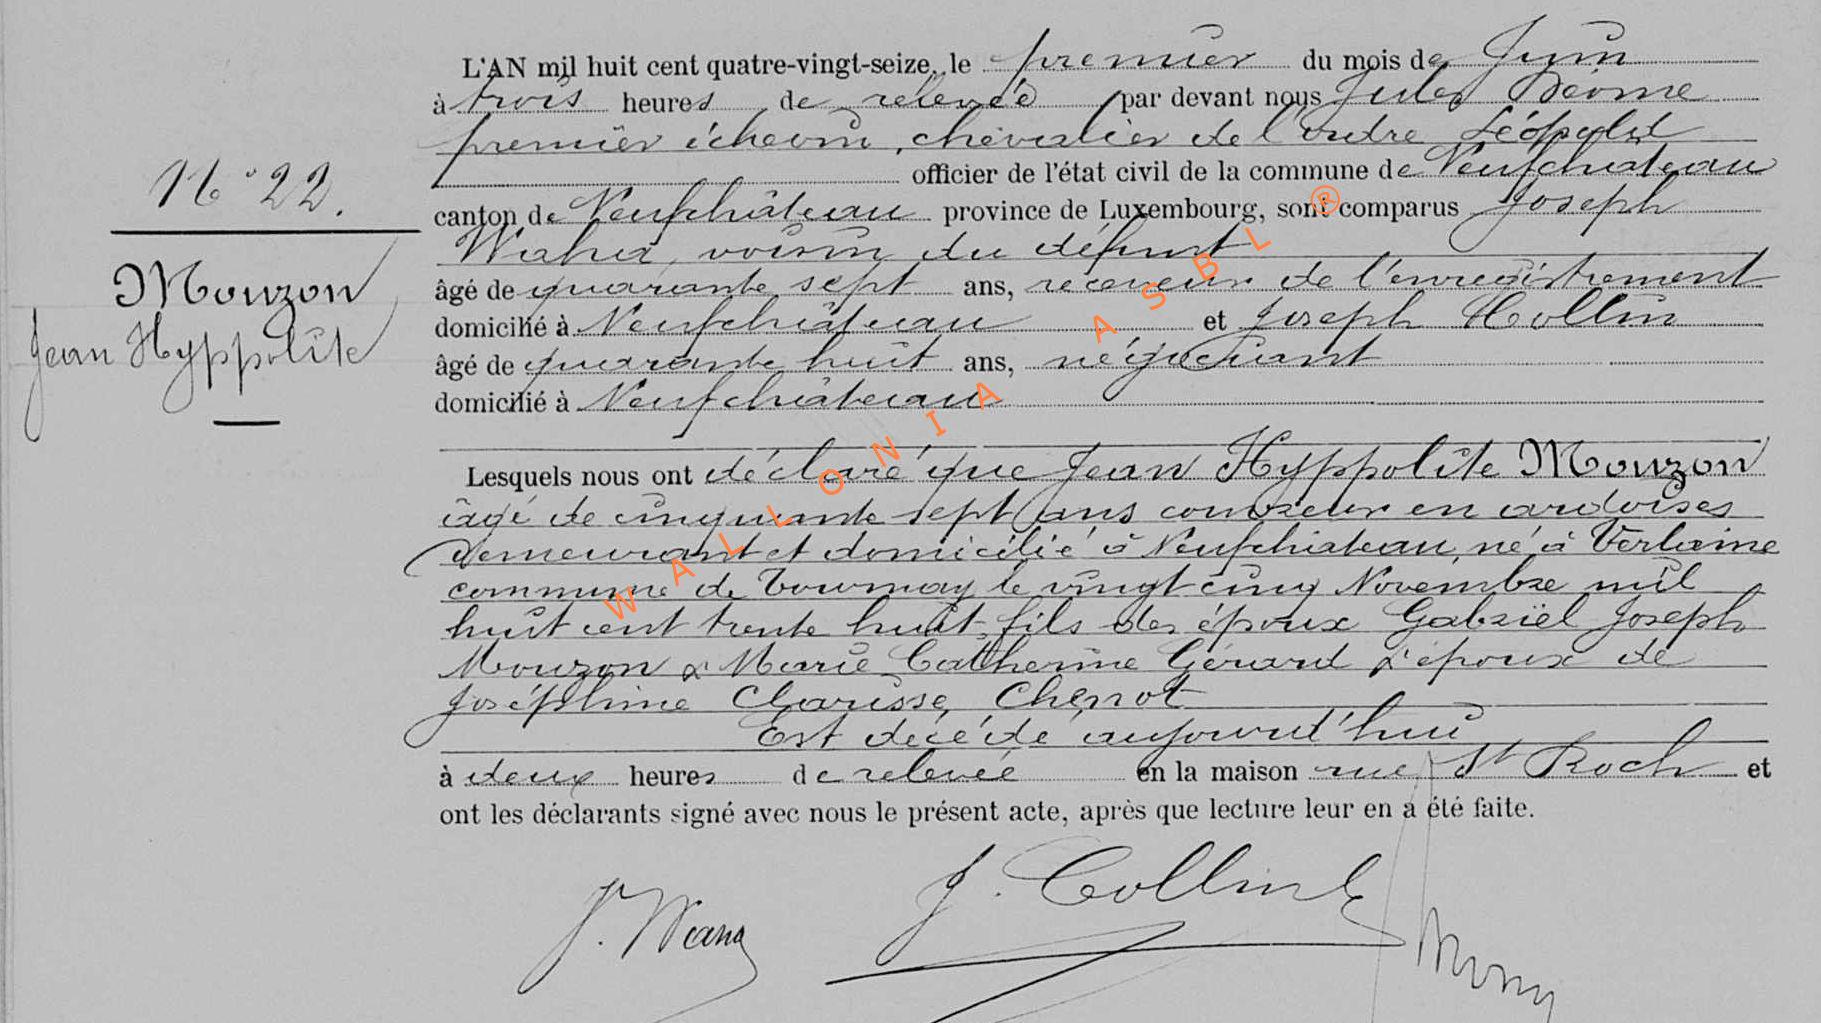 L'AN mil huit cent quatre-vingt-seize, le premier du mois de Juin
à trois heures de relevée par devant nous Jules
premier échevin, chevalier de l'ordre Léopold
officier de l'état civil de la commune de Neufchateau
N° 22.
canton de Neufchâteau province de Luxembourg, sont comparus Joseph
voisin du défunt
Mouzon
âgé de quarante sept ans, receveur de l'enregistrement
Jean Hyppolite
domicilié à Neufchâteau et Joseph Collin
âgé de quarante huit ans, négociant
domicilié à Neufchâteau
Lesquels nous ont déclaré que Jean Hyppolite Mouzon
âgé de cinquante sept ans couvreur en ardoises
demeurant et domicilié à Neufchateau, né à Verlaine
commune de Tournay le vingt cinq Novembre mil
huit cent trente huit, fils des époux Gabriël Joseph
Mouzon & Marie Catherine Gérard & époux de
Joséphine Clarisse Chenot
Est décédé aujourd'hui
à deux heures de relevée en la maison rue St Roch et
ont les déclarants signé avec nous le présent acte, après que lecture leur en a été faite.
J. Collin
WALLONIA ASBL ®